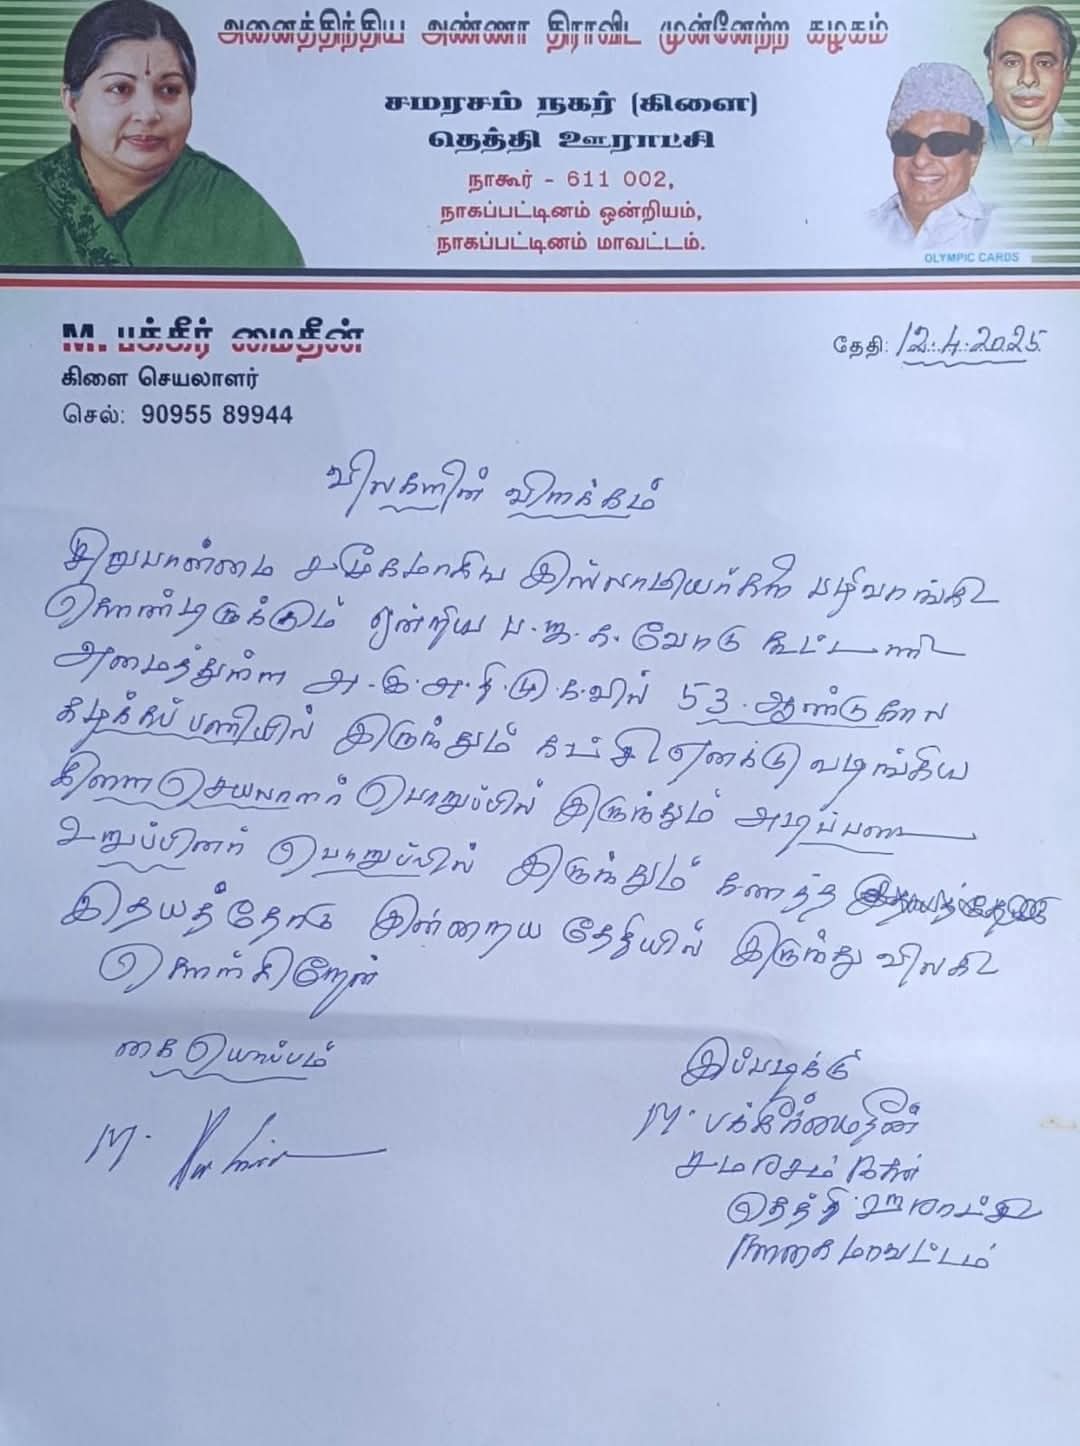 அனைத்திந்திய அண்ணா திராவிட முன்னேற்ற கழகம்
சமரசம் நகர் (கிளை)
தெத்தி ஊராட்சி
நாகூர் - 611 002,
நாகப்பட்டினம் ஒன்றியம்,
நாகப்பட்டினம் மாவட்டம்.
OLYMPIC CARDS
M. பக்கீர் மைதீன்
தேதி: 12.4.2025
கிளை செயலாளர்
செல்: 90955 89944
விலகளின் விளக்கம்
சிறுபான்மை சமூகமாகிய இஸ்லாமியர்களை பழிவாங்கி
கொண்டிருக்கும் ஒன்றிய ப.ஜ.க.வோடு கூட்டணி
அமைத்துள்ள அ.இ.அ.தி.மு.கவில் 53 ஆண்டுகால
கழகப் பணியில் இருந்தும் கட்சி எனக்கு வழங்கிய
கிளை செயலாளர் பொறுப்பில் இருந்தும் அடிப்படை
உறுப்பினர் பொறுப்பில் இருந்தும் கனத்த
இதயத்தோடு இன்றைய தேதியில் இருந்து விலகி
கொள்கிறேன்
கையொப்பம்
இப்படிக்கு
M. பக்கீர்மைதீன்
சமரசம் நகர்
தெத்தி ஊராட்சி
நாகை மாவட்டம்